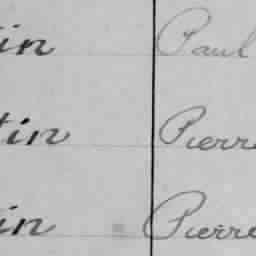 in Paul
tin Pierre
in Pierre